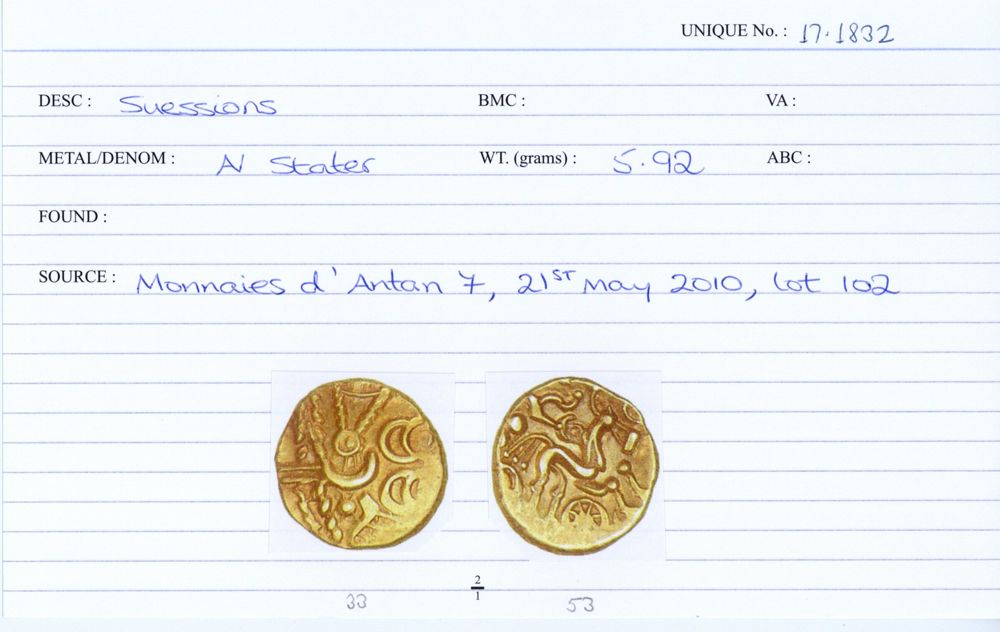 UNIQUE No. : 17.1832
DESC : Suessions BMC : VA :
METAL/DENOM : AV Stater WT. (grams) : 5.92 ABC :
FOUND :
SOURCE : Monnaies d'Antan 7, 21ST May 2010, Lot 102
2
1
33 53